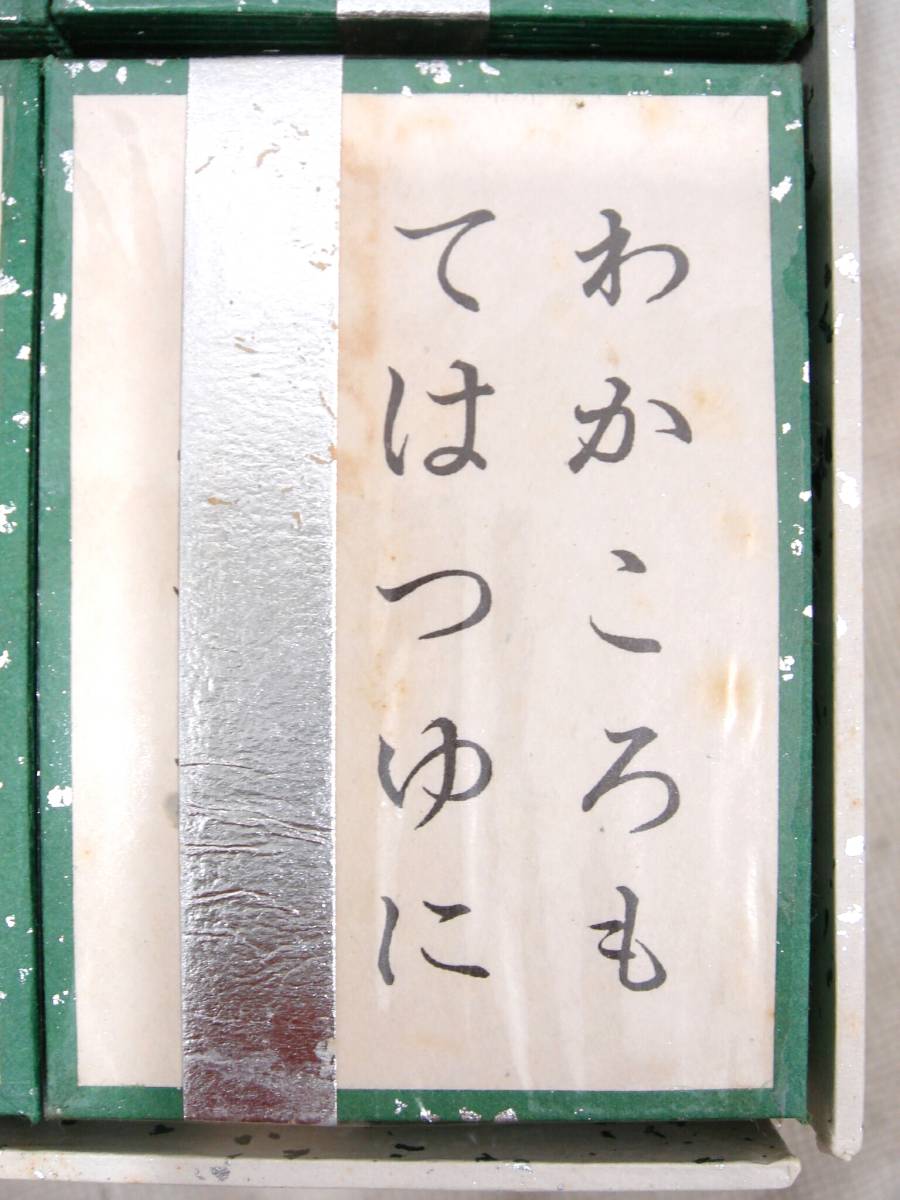 わかころも
てはつゆに